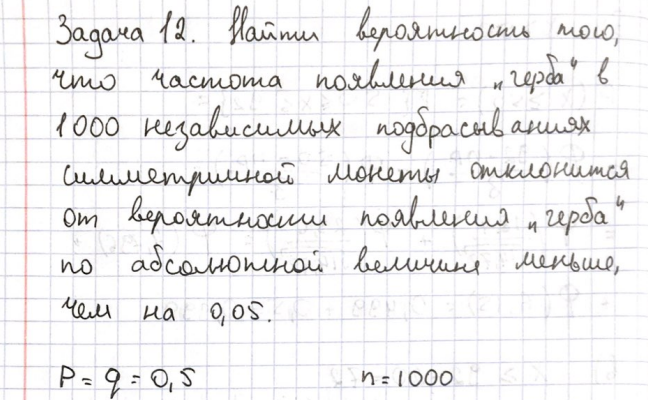 Задача 12. Найти вероятность того,
что частота появления „герба“ в
1000 независимых подбрасываниях
симметричной монеты отклонится
от вероятности появления „герба“
по абсолютной величине меньше,
чем на 0,05.
P = q = 0,5 n = 1000